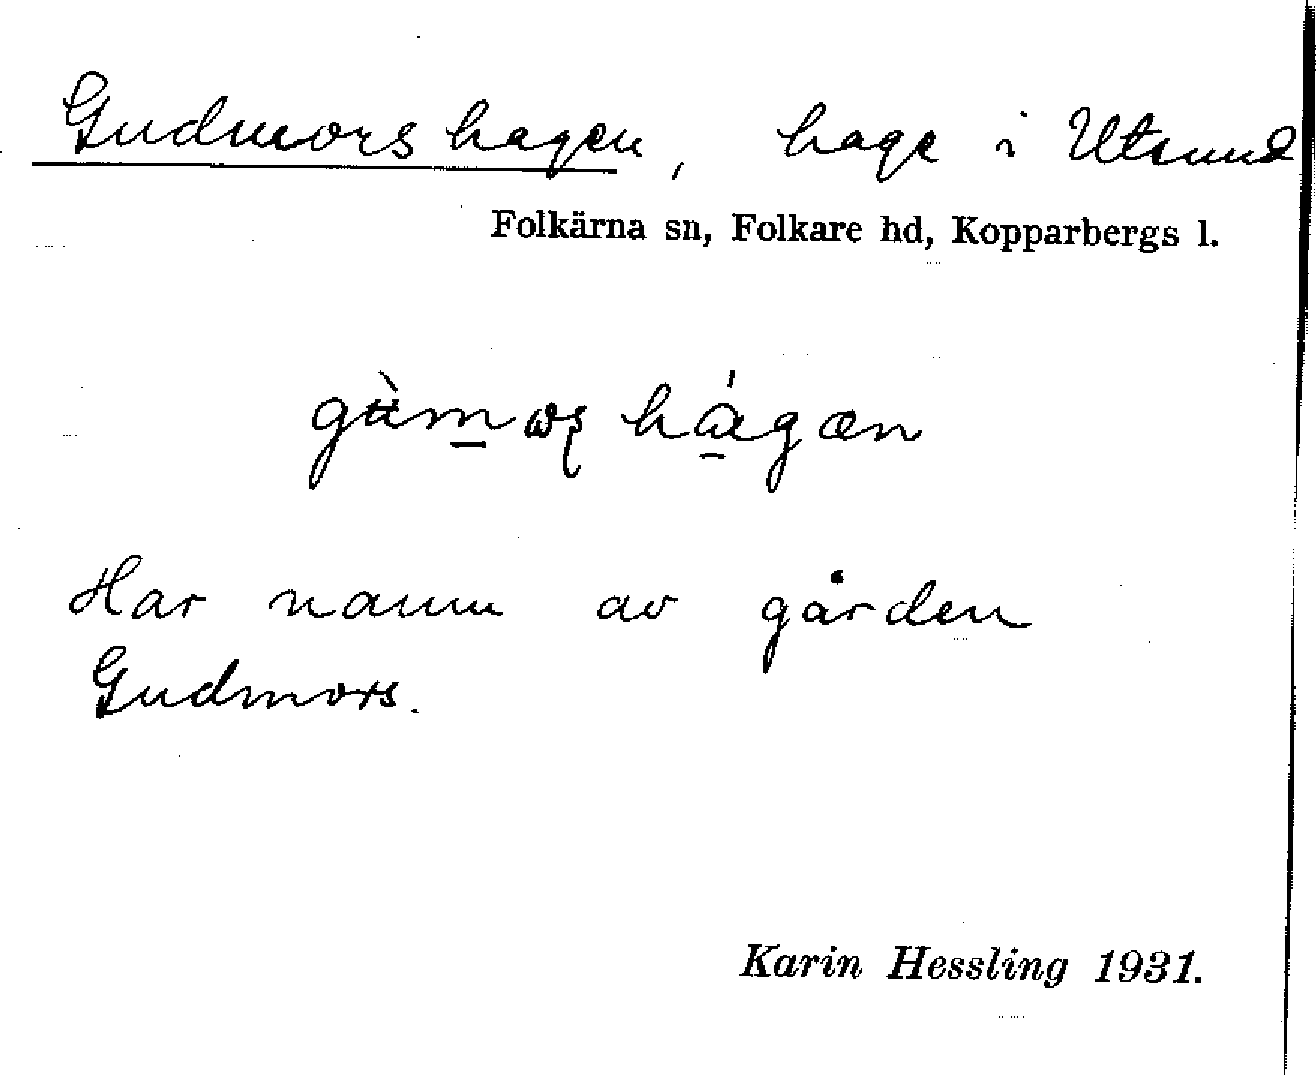 Gudmorshagen, hage i Utsund
Folkärna sn, Folkare hd, Kopparbergs l.
Har namn av gården
Gudmors.
Karin Hessling 1931.